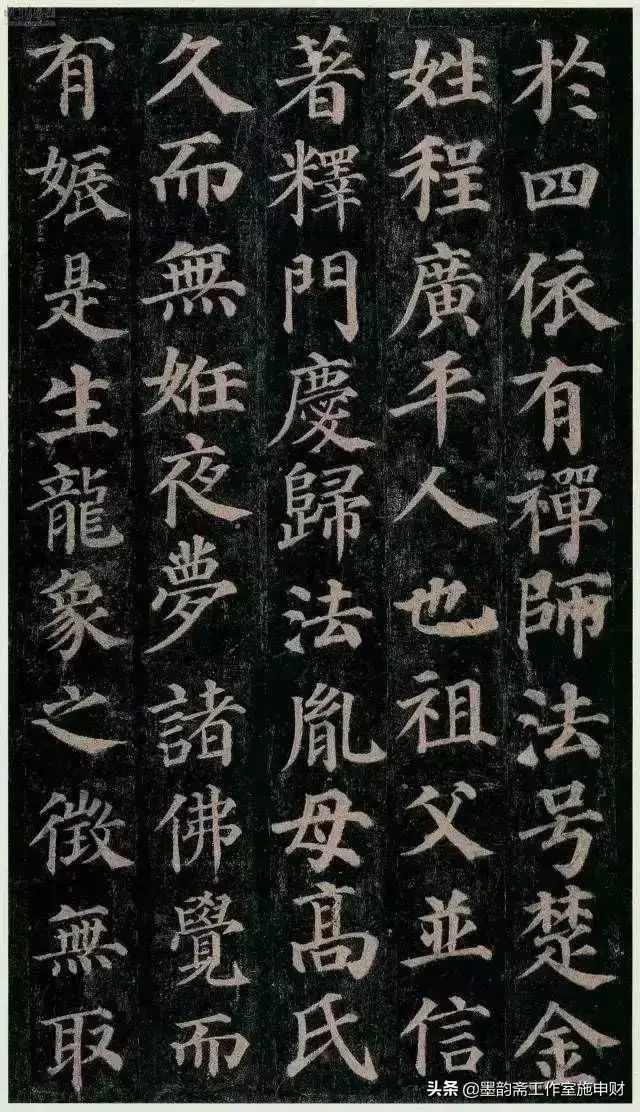 於四依有禪師法号楚金
姓程廣平人也祖父並信
著釋門慶歸法胤母髙氏
久而無姙夜夢諸佛覺而
有娠是生龍象之徴無取
头条 @墨韵斋工作室施申财